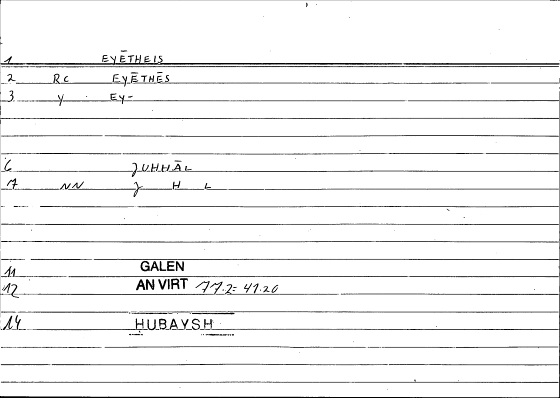 1 EYĒTHEIS
2 RC EYĒTHĒS
3 Y EY-
6 JUHHĀL
7 NN J H L
11 GALEN
12 AN VIRT 77.2 = 41.20
14 HUBAYSH